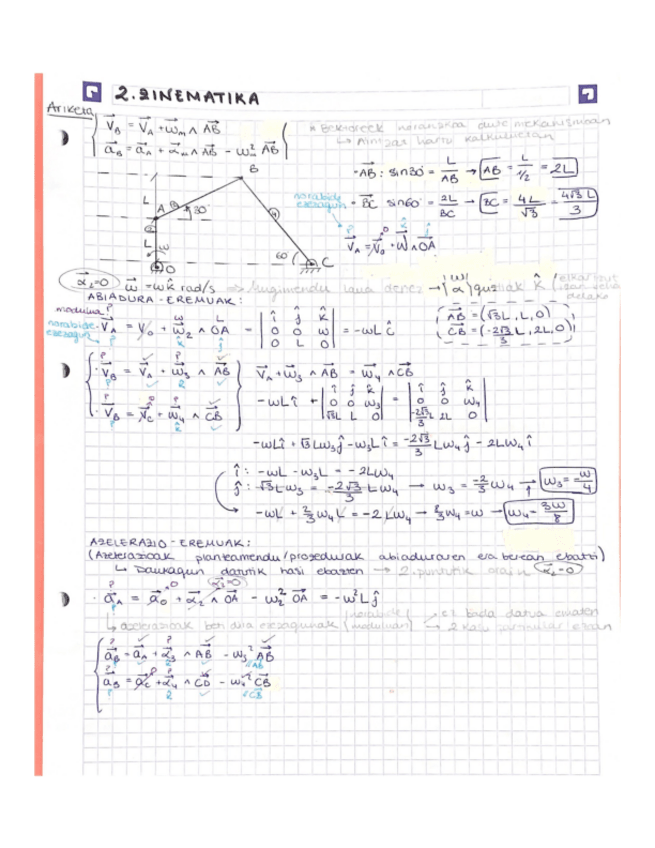 2. ZINEMATIKA
Ariketa
V⃗B = V⃗A + ω⃗m ∧ AB⃗
a⃗B = a⃗A + α⃗m ∧ AB⃗ - ω²m AB⃗
* Bektoreek noranzkoa dute mekanismoan
↳ Aintzat hartu kalkuluetan
· AB⃗ : sin30° = L/AB → AB = L/(1/2) = 2L
· BC⃗ sin60° = 2L/BC → BC = 4L/√3 = 4√3L/3
norabide ezezaguna
V⃗A = V⃗0 + ω⃗ ∧ OA⃗
B
A 30°
L
L ω
O
60° C
α⃗2=0 ω⃗ = ωk̂ rad/s ⇒ Higimendu laua denez → |ω| |α| guztiak k̂
ABIADURA-EREMUAK:
modulua?
norabide ezezaguna
V⃗A = V⃗0 + ω⃗2 ∧ OA⃗ = | î ĵ k̂ | 0 0 ω | 0 L 0 | = -ωL î
AB⃗ = (√3L, L, 0)
CB⃗ = (-2√3/3 L, 2L, 0)
· V⃗B = V⃗A + ω⃗3 ∧ AB⃗
· V⃗B = V⃗C + ω⃗4 ∧ CB⃗
V⃗A + ω⃗3 ∧ AB⃗ = ω⃗4 ∧ CB⃗
-ωL î + | î ĵ k̂ | 0 0 ω3 | √3L L 0 | = | î ĵ k̂ | 0 0 ω4 | -2√3/3 L 2L 0 |
-ωLî + √3Lω3ĵ - ω3Lî = -2√3/3 Lω4ĵ - 2Lω4 î
î : -ωL - ω3L = -2Lω4
ĵ : √3Lω3 = -2√3/3 Lω4 → ω3 = -2/3 ω4 → ω3 = -ω/4
→ -ωL + 2/3 ω4L = -2Lω4 → 8/3 ω4 = ω → ω4 = 3ω/8
AZELERAZIO-EREMUAK:
(Azelerazioak planteamendu/prozedurak abiaduraren era berean ebatzi)
↳ Daukagun datutik hasi ebazten → 2. puntutik orain α⃗2=0
α⃗2=0
· a⃗A = a⃗0 + α⃗2 ∧ OA⃗ - ω2² OA⃗ = -ω²Lĵ
↳ azelerazioak ben dira ezezagunak (norabide modulua) ez bada datua ematen
→ 2 kasu partikular izan
a⃗B = a⃗A + α⃗3 ∧ AB⃗ - ω3² AB⃗
a⃗B = a⃗C + α⃗4 ∧ CB⃗ - ω4² CB⃗